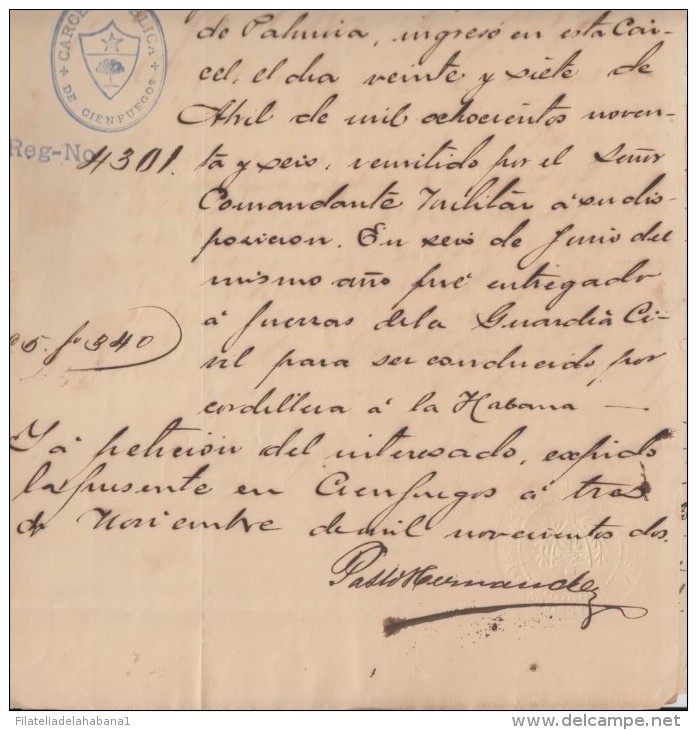 CARCEL PUBLICA
DE CIENFUEGOS
Reg-No 4301.
de Palmira, ingresó en esta Cár-
cel, el dia veinte y siete de
Abril de mil ochocientos noven-
ta y seis, remitido por el Señor
Comandante Militar á su dis-
posicion. En seis de Junio del
mismo año fué entregado
á fuerzas de la Guardia Ci-
vil para ser conducido por
cordillera á la Habana —
5. fo 340
Y á peticion del interesado, expido
la presente en Cienfuegos á tres
de Noviembre de mil novecientos dos.
Pablo Hernandez
Filateliadelahabana1
delcampe.net